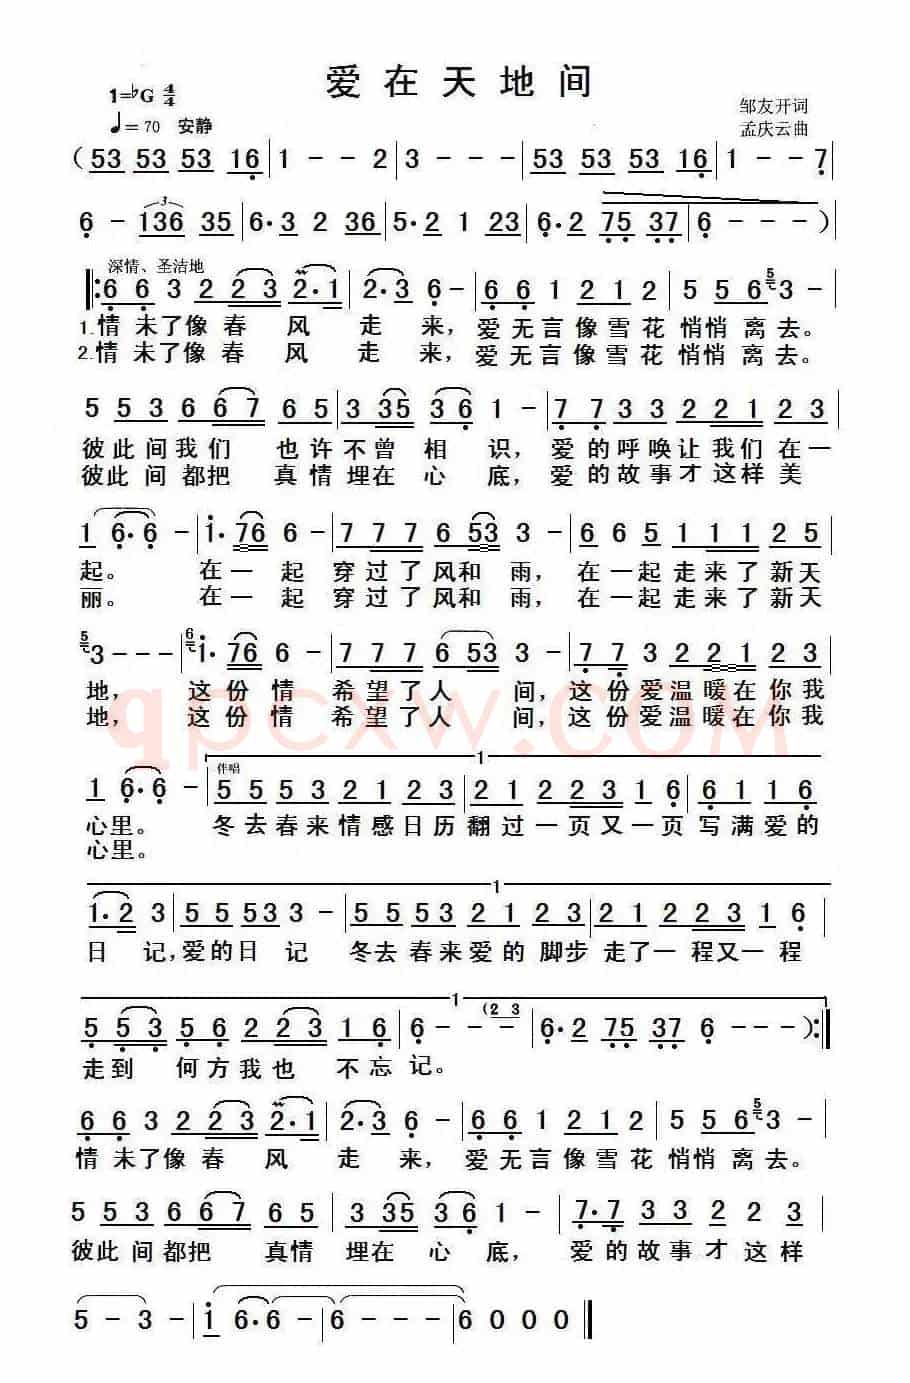 爱在天地间
1=♭G 4/4
邹友开词
♩=70 安静
孟庆云曲
(53 53 53 16|1 - - 2|3 - - -|53 53 53 16|1 - - 7|
6 - 136 35|6·3 2 36|5·2 1 23|6·2 75 37|6 - - -)|
深情、圣洁地
‖:6 6 3 2 2 3 2·1|2·3 6 -|6 6 1 2 1 2|5 5 5 6 3 -|
1.情未了像春风走来，爱无言像雪花悄悄离去。
2.情未了像春风走来，爱无言像雪花悄悄离去。
5 5 3 6 6 7 6 5|3 35 3 6 1 -|7 7 3 3 2 2 1 2 3|
彼此间我们也许不曾相识，爱的呼唤让我们在一
彼此间都把真情埋在心底，爱的故事才这样美
1 6·6 -|1·76 6 -|7 7 7 6 53 3 -|6 6 5 1 1 1 2 5|
起。在一起穿过了风和雨，在一起走来了新天
丽。在一起穿过了风和雨，在一起走来了新天
3 - - -|1·76 6 -|7 7 7 6 53 3 -|7 7 3 2 2 1 2 3|
地，这份情希望了人间，这份爱温暖在你我
地，这份情希望了人间，这份爱温暖在你我
qpcxw.com
1
伴唱
1 6·6 -|5 5 5 3 2 1 2 3|2 1 2 2 3 1 6|6 1 1 6|
心里。冬去春来情感日历翻过一页又一页写满爱的
心里。
1
1·2 3|5 5 53 3 -|5 5 53 2 1 2|2 1 2 2 3 1 6|
日记，爱的日记冬去春来爱的脚步走了一程又一程
1
5 5 3 5 6 2 2 3 1 6|6 - - (2 3|6·2 75 37 6 - -):‖
走到何方我也不忘记。
6 6 3 2 2 3 2·1|2·3 6 -|6 6 1 2 1 2|5 5 6 3 -|
情未了像春风走来，爱无言像雪花悄悄离去。
5 5 3 6 6 7 6 5|3 35 3 6 1 -|7·7 3 3 2 2 3|
彼此间都把真情埋在心底，爱的故事才这样
5 - 3 -|1 6·6 -|- - - -|6 0 0 0‖